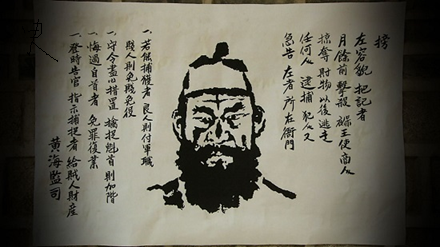 榜
左容貌 把記者
月餘前 擊殺 碌王使商人
掠奪 財物 以後逃走
任何人 逮捕 犯人又
急告 左者 所左衙門
一. 若能捕獲者 良人則付軍職
賤人則免賤免役
一. 守令盡心措置 擒捉魁首 則加階
一. 悔過自首者 免罪復業
一. 登時告官 指示捕捉者 給賊人財産
黃海監司